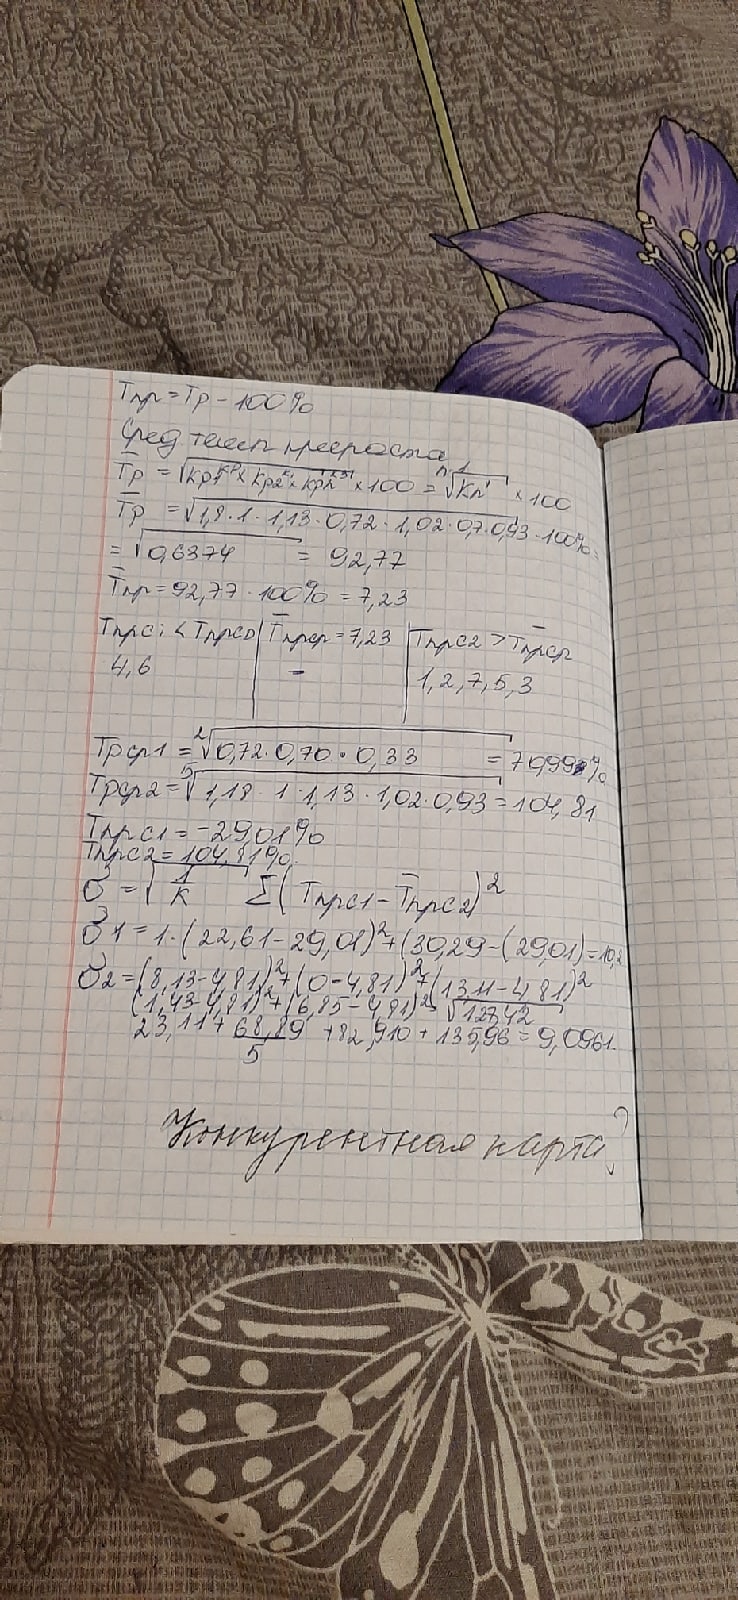 Тпр = Тр - 100%
Сред темп прироста
Т̄р = √Кр1 × Кр2 × Крn × 100 = √Кn × 100
Т̄р = √1,8 · 1 · 1,13 · 0,72 · 1,02 · 0,7 · 0,93 · 100% =
= √0,6374 = 92,77
Т̄пр = 92,77 · 100% = 7,23
Т̄прср = 7,23 Тпрс2 > Т̄прср
4,6 - 1,2,7,5,3
Трср1 = ²√0,72 · 0,70 · 0,33 = %
Трср2 = ⁵√1,18 · 1 · 1,13 · 1,02 · 0,93 = 104,81
Тпрс1 = -29,01%
Тпрс2 = 104,81%
σ = √1/К Σ(Тпрс1 - Т̄прс2)²
σ1 = 1 · (22,61 - 29,01)² + (30,29 - (29,01) = 10,2
σ2 = (8,13 - 4,81)² + (0 - 4,81)² + (13,11 - 4,81)²
(1,43 - 4,81)² + (6,85 - 4,81)² √127,42
23,11 + 68,89 + 82,910 + 135,96 = 9,0961
5
Конкурентная карта?